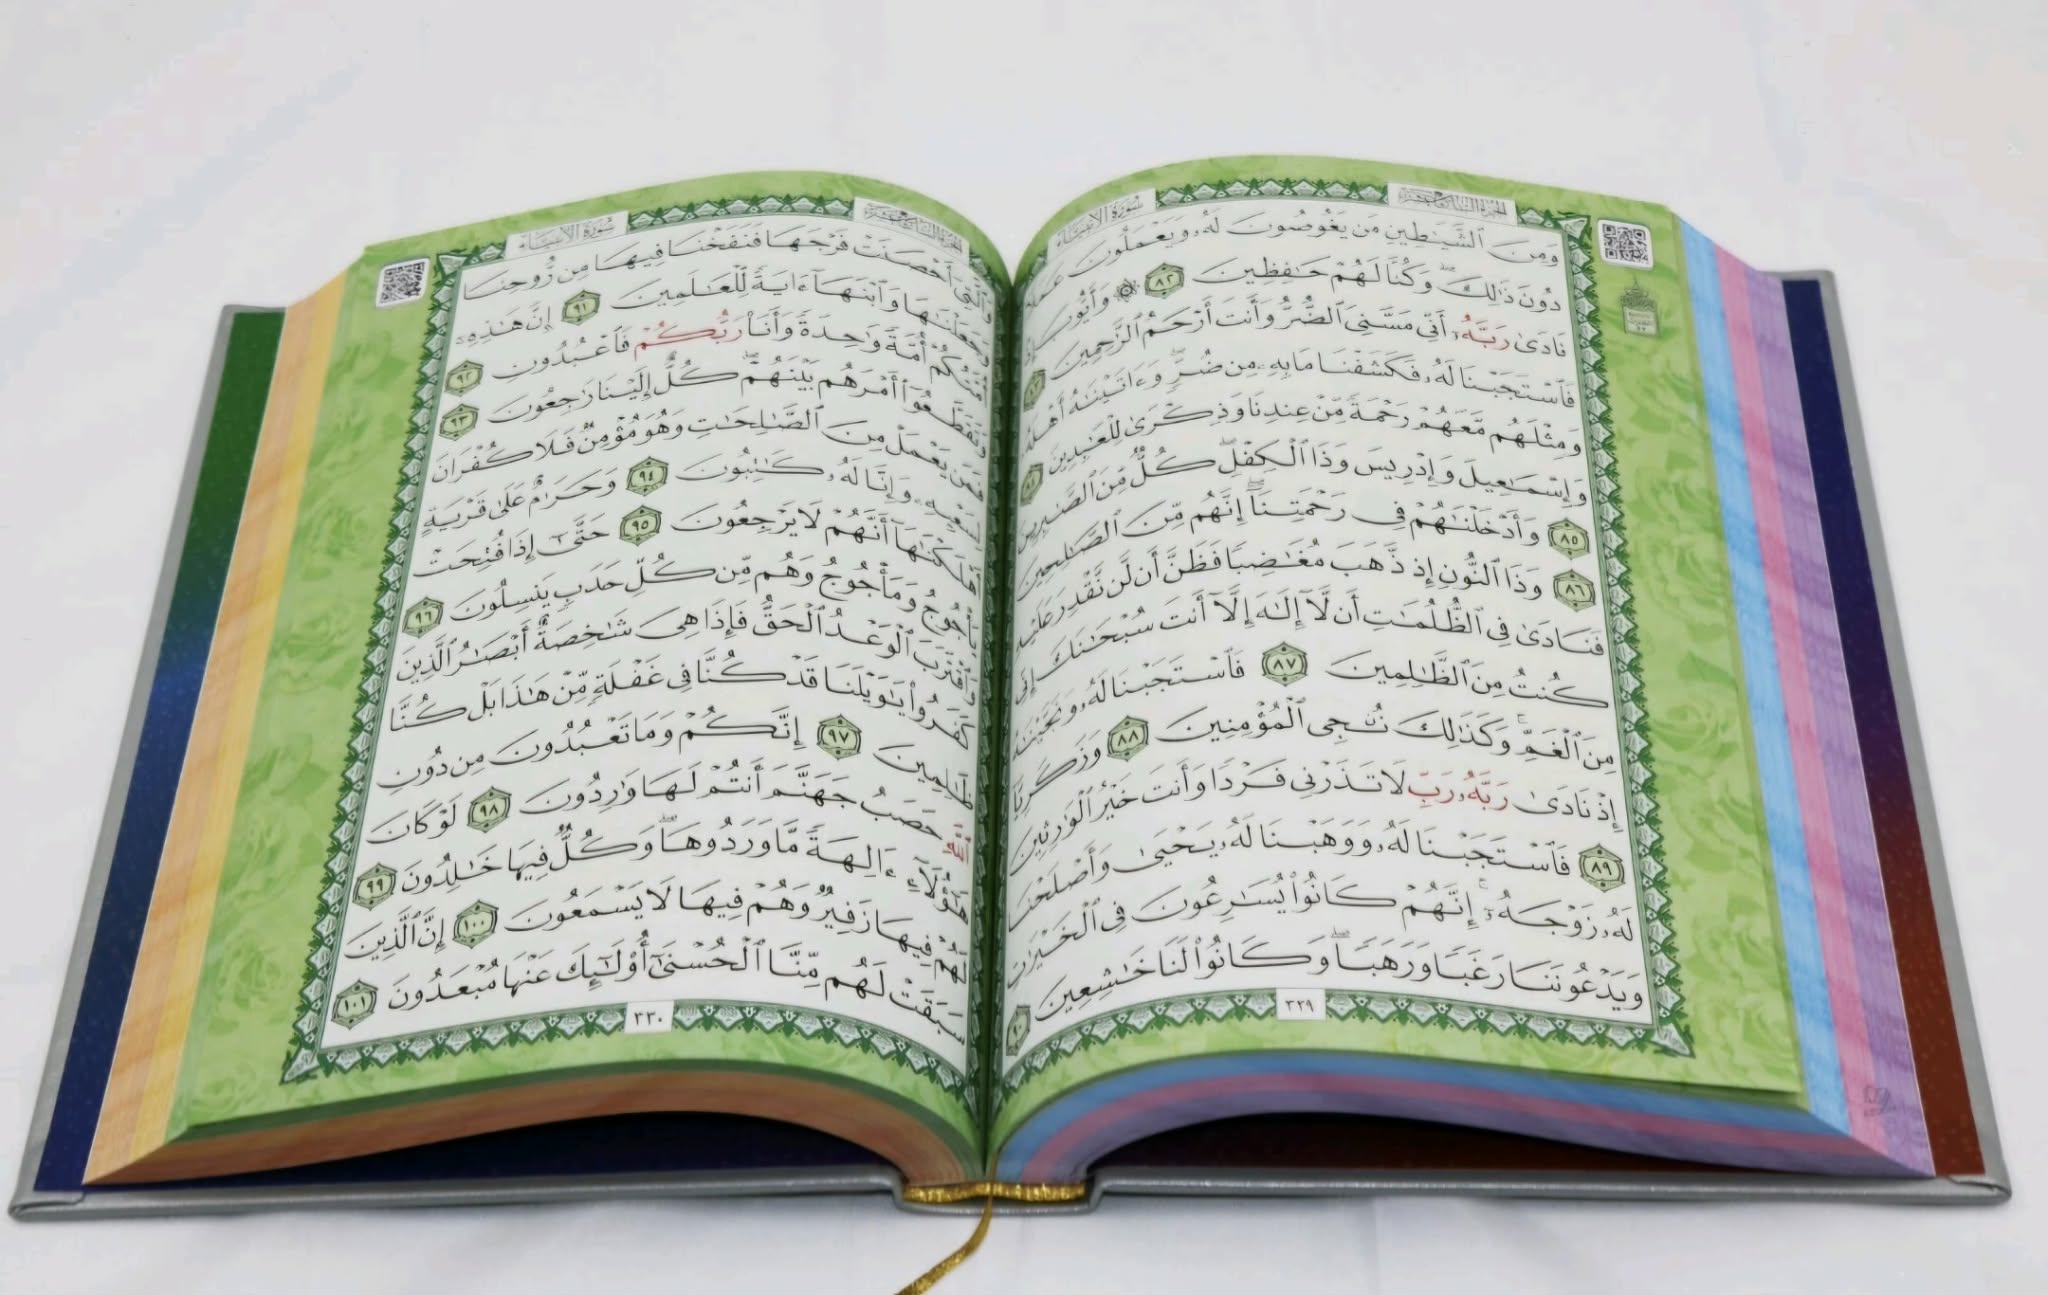 سُورَةُ الأَنبِيَاء
الجُزءُ السَّابِعَ عَشَرَ
وَمِنَ ٱلشَّيَٰطِينِ مَن يَغُوصُونَ لَهُۥ وَيَعْمَلُونَ عَمَلًا
دُونَ ذَٰلِكَۖ وَكُنَّا لَهُمْ حَٰفِظِينَ ٨٢ ۞ وَأَيُّوبَ إِذْ
نَادَىٰ رَبَّهُۥٓ أَنِّى مَسَّنِىَ ٱلضُّرُّ وَأَنتَ أَرْحَمُ ٱلرَّٰحِمِينَ
فَٱسْتَجَبْنَا لَهُۥ فَكَشَفْنَا مَا بِهِۦ مِن ضُرٍّۖ وَءَاتَيْنَٰهُ أَهْلَهُۥ
وَمِثْلَهُم مَّعَهُمْ رَحْمَةً مِّنْ عِندِنَا وَذِكْرَىٰ لِلْعَٰبِدِينَ
وَإِسْمَٰعِيلَ وَإِدْرِيسَ وَذَا ٱلْكِفْلِۖ كُلٌّ مِّنَ ٱلصَّٰبِرِينَ
٨٥ وَأَدْخَلْنَٰهُمْ فِى رَحْمَتِنَآۖ إِنَّهُم مِّنَ ٱلصَّٰلِحِينَ
٨٦ وَذَا ٱلنُّونِ إِذ ذَّهَبَ مُغَٰضِبًا فَظَنَّ أَن لَّن نَّقْدِرَ عَلَيْهِ
فَنَادَىٰ فِى ٱلظُّلُمَٰتِ أَن لَّآ إِلَٰهَ إِلَّآ أَنتَ سُبْحَٰنَكَ إِنِّى
كُنتُ مِنَ ٱلظَّٰلِمِينَ ٨٧ فَٱسْتَجَبْنَا لَهُۥ وَنَجَّيْنَٰهُ
مِنَ ٱلْغَمِّۚ وَكَذَٰلِكَ نُۨجِى ٱلْمُؤْمِنِينَ ٨٨ وَزَكَرِيَّآ
إِذْ نَادَىٰ رَبَّهُۥ رَبِّ لَا تَذَرْنِى فَرْدًا وَأَنتَ خَيْرُ ٱلْوَٰرِثِينَ
٨٩ فَٱسْتَجَبْنَا لَهُۥ وَوَهَبْنَا لَهُۥ يَحْيَىٰ وَأَصْلَحْنَا
لَهُۥ زَوْجَهُۥٓۚ إِنَّهُمْ كَانُوا۟ يُسَٰرِعُونَ فِى ٱلْخَيْرَٰتِ
وَيَدْعُونَنَا رَغَبًا وَرَهَبًاۖ وَكَانُوا۟ لَنَا خَٰشِعِينَ ٩٠
٣٢٩
سُورَةُ الأَنبِيَاء
الجُزءُ السَّابِعَ عَشَرَ
وَٱلَّتِىٓ أَحْصَنَتْ فَرْجَهَا فَنَفَخْنَا فِيهَا مِن رُّوحِنَا
وَجَعَلْنَٰهَا وَٱبْنَهَآ ءَايَةً لِّلْعَٰلَمِينَ ٩١ إِنَّ هَٰذِهِۦٓ
أُمَّتُكُمْ أُمَّةً وَٰحِدَةً وَأَنَا۠ رَبُّكُمْ فَٱعْبُدُونِ ٩٢
وَتَقَطَّعُوٓا۟ أَمْرَهُم بَيْنَهُمْۖ كُلٌّ إِلَيْنَا رَٰجِعُونَ ٩٣
فَمَن يَعْمَلْ مِنَ ٱلصَّٰلِحَٰتِ وَهُوَ مُؤْمِنٌ فَلَا كُفْرَانَ
لِسَعْيِهِۦ وَإِنَّا لَهُۥ كَٰتِبُونَ ٩٤ وَحَرَٰمٌ عَلَىٰ قَرْيَةٍ
أَهْلَكْنَٰهَآ أَنَّهُمْ لَا يَرْجِعُونَ ٩٥ حَتَّىٰٓ إِذَا فُتِحَتْ
يَأْجُوجُ وَمَأْجُوجُ وَهُم مِّن كُلِّ حَدَبٍ يَنسِلُونَ ٩٦
وَٱقْتَرَبَ ٱلْوَعْدُ ٱلْحَقُّ فَإِذَا هِىَ شَٰخِصَةٌ أَبْصَٰرُ ٱلَّذِينَ
كَفَرُوا۟ يَٰوَيْلَنَا قَدْ كُنَّا فِى غَفْلَةٍ مِّنْ هَٰذَا بَلْ كُنَّا
ظَٰلِمِينَ ٩٧ إِنَّكُمْ وَمَا تَعْبُدُونَ مِن دُونِ
ٱللَّهِ حَصَبُ جَهَنَّمَ أَنتُمْ لَهَا وَٰرِدُونَ ٩٨ لَوْ كَانَ
هَٰٓؤُلَآءِ ءَالِهَةً مَّا وَرَدُوهَاۖ وَكُلٌّ فِيهَا خَٰلِدُونَ ٩٩
لَهُمْ فِيهَا زَفِيرٌ وَهُمْ فِيهَا لَا يَسْمَعُونَ ١٠٠ إِنَّ ٱلَّذِينَ
سَبَقَتْ لَهُم مِّنَّا ٱلْحُسْنَىٰٓ أُو۟لَٰٓئِكَ عَنْهَا مُبْعَدُونَ ١٠١
٣٣٠